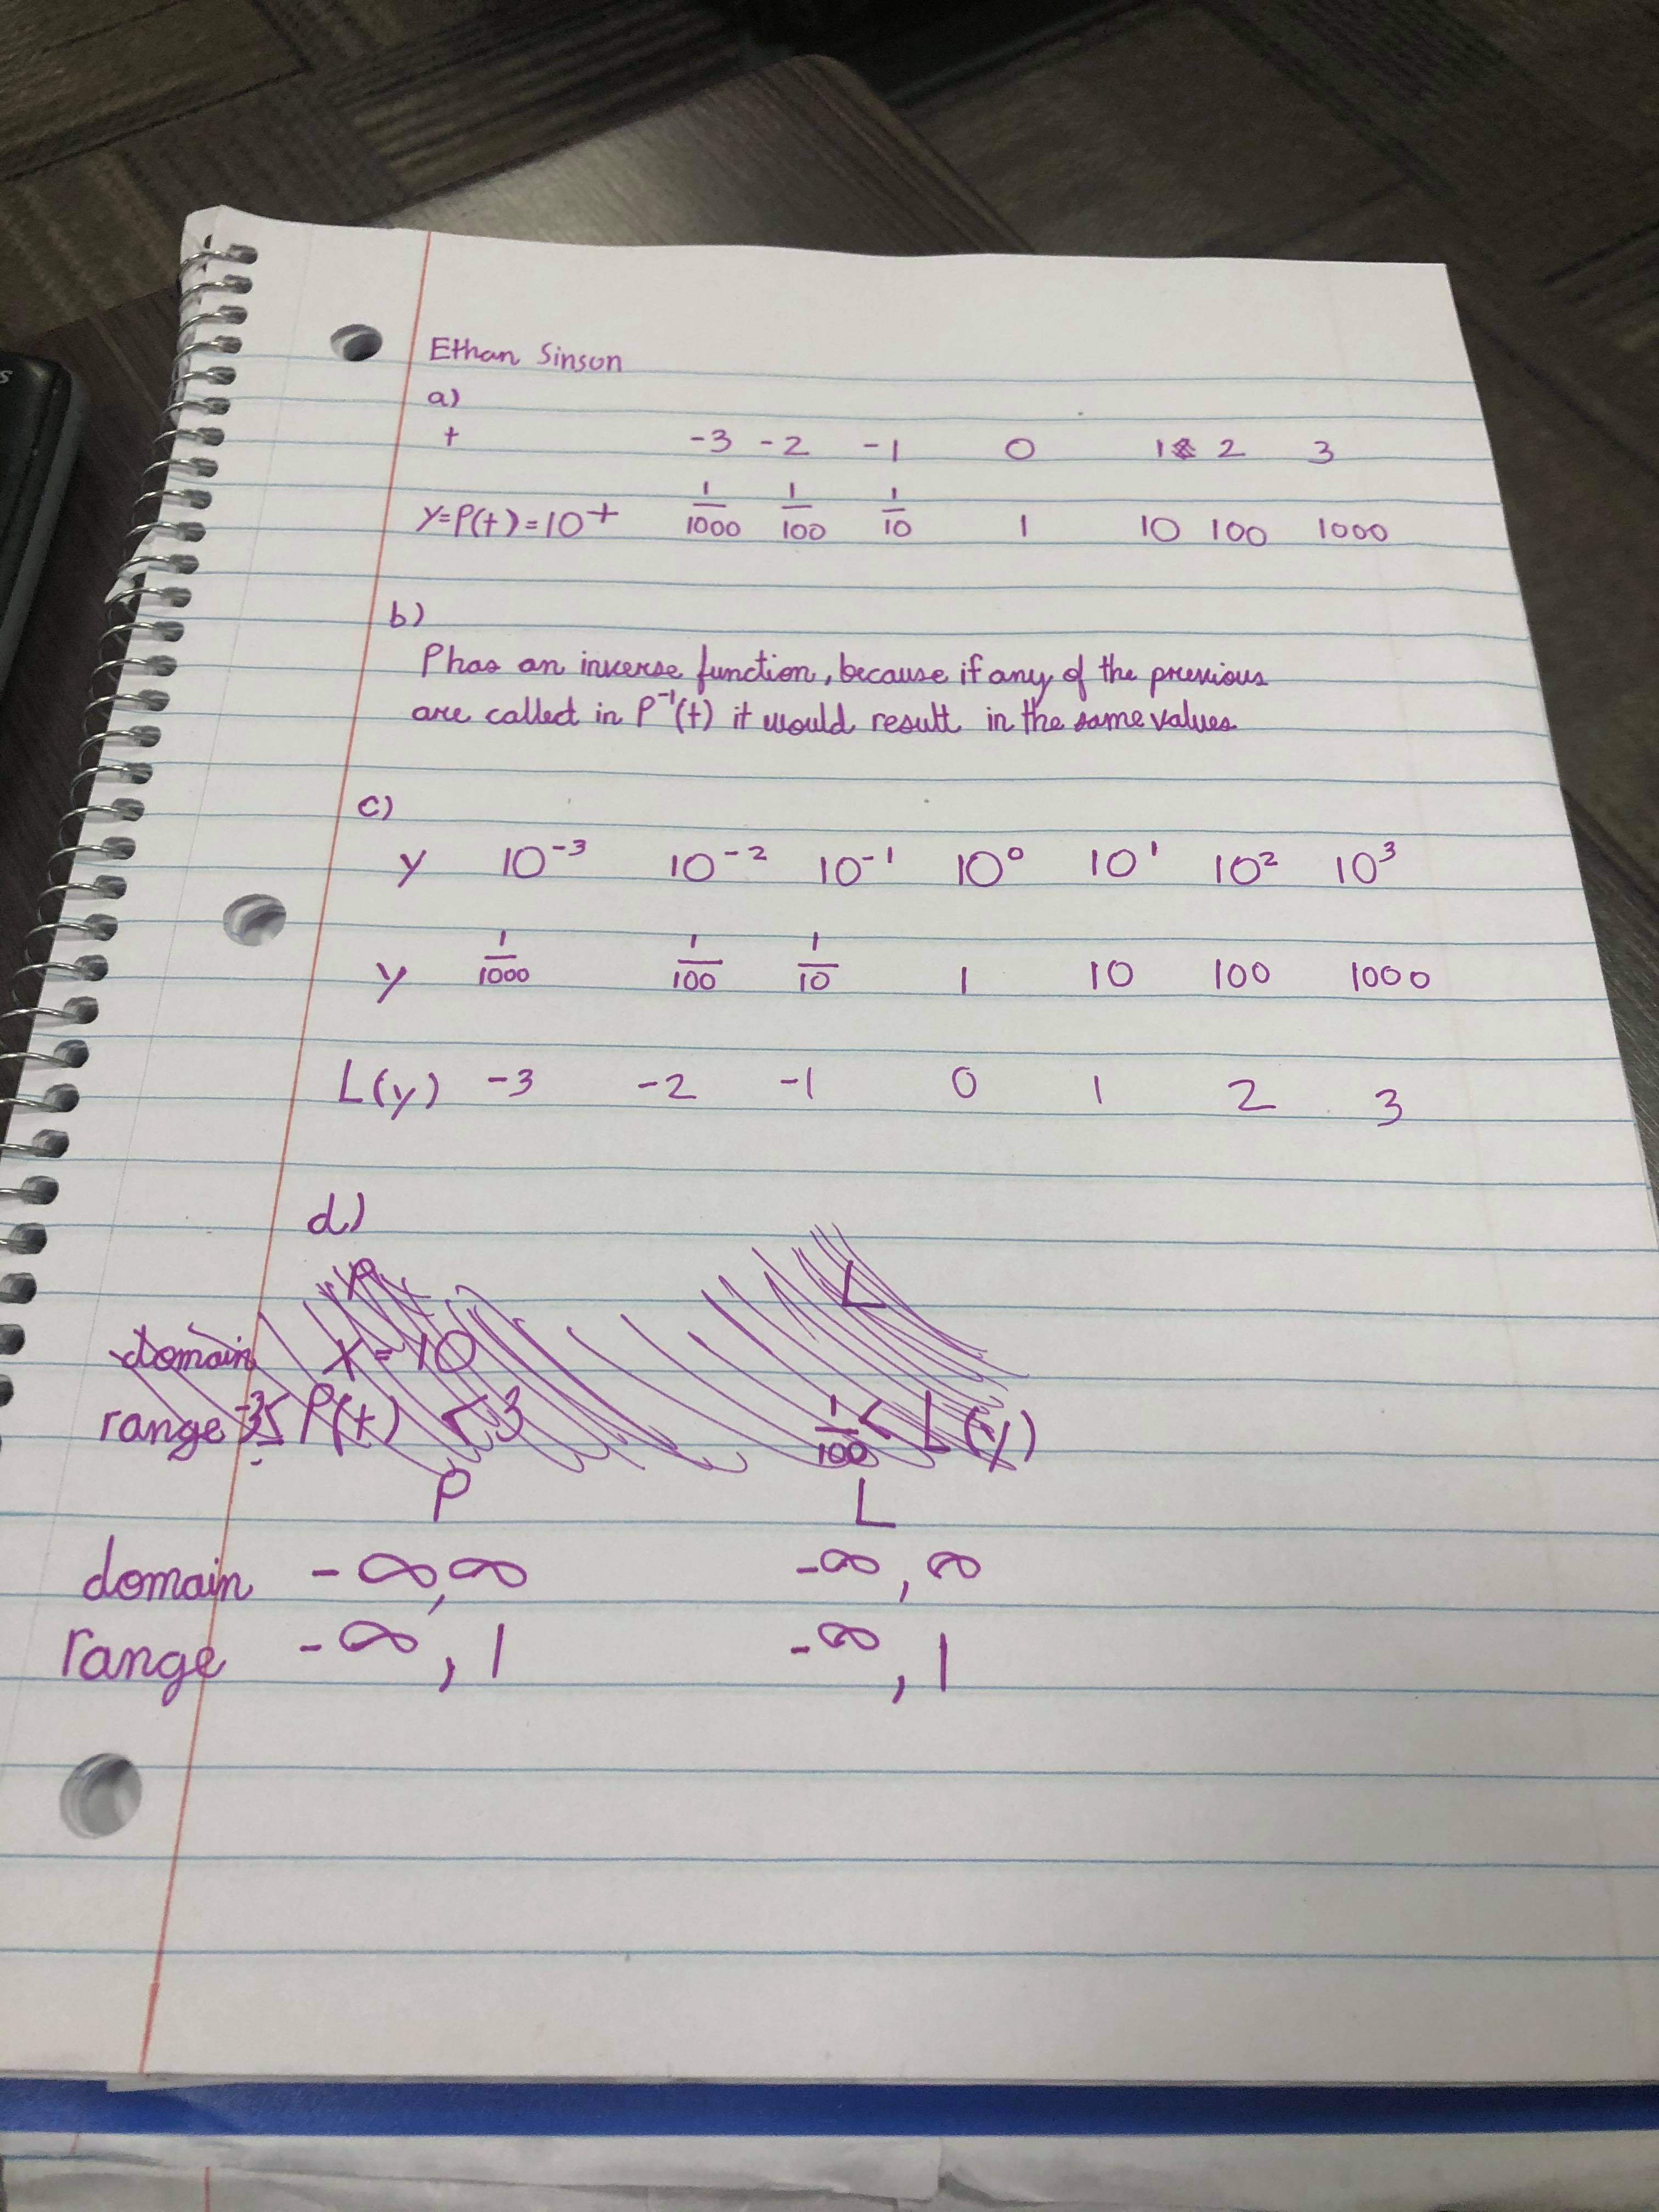 Ethan Sinson
a)
t -3 -2 -1 0 1 2 3
y=P(t)=10^t 1/1000 1/100 1/10 1 10 100 1000
b)
P has an inverse function, because if any of the previous
are called in P^-1(t) it would result in the same values
c)
y 10^-3 10^-2 10^-1 10^0 10^1 10^2 10^3
y 1/1000 1/100 1/10 1 10 100 1000
L(y) -3 -2 -1 0 1 2 3
d)
L
domain x=10
range -3≤ P(t) ≤3 1/100 < L(y)
P L
domain -∞,∞ -∞,∞
range -∞,1 -∞,1